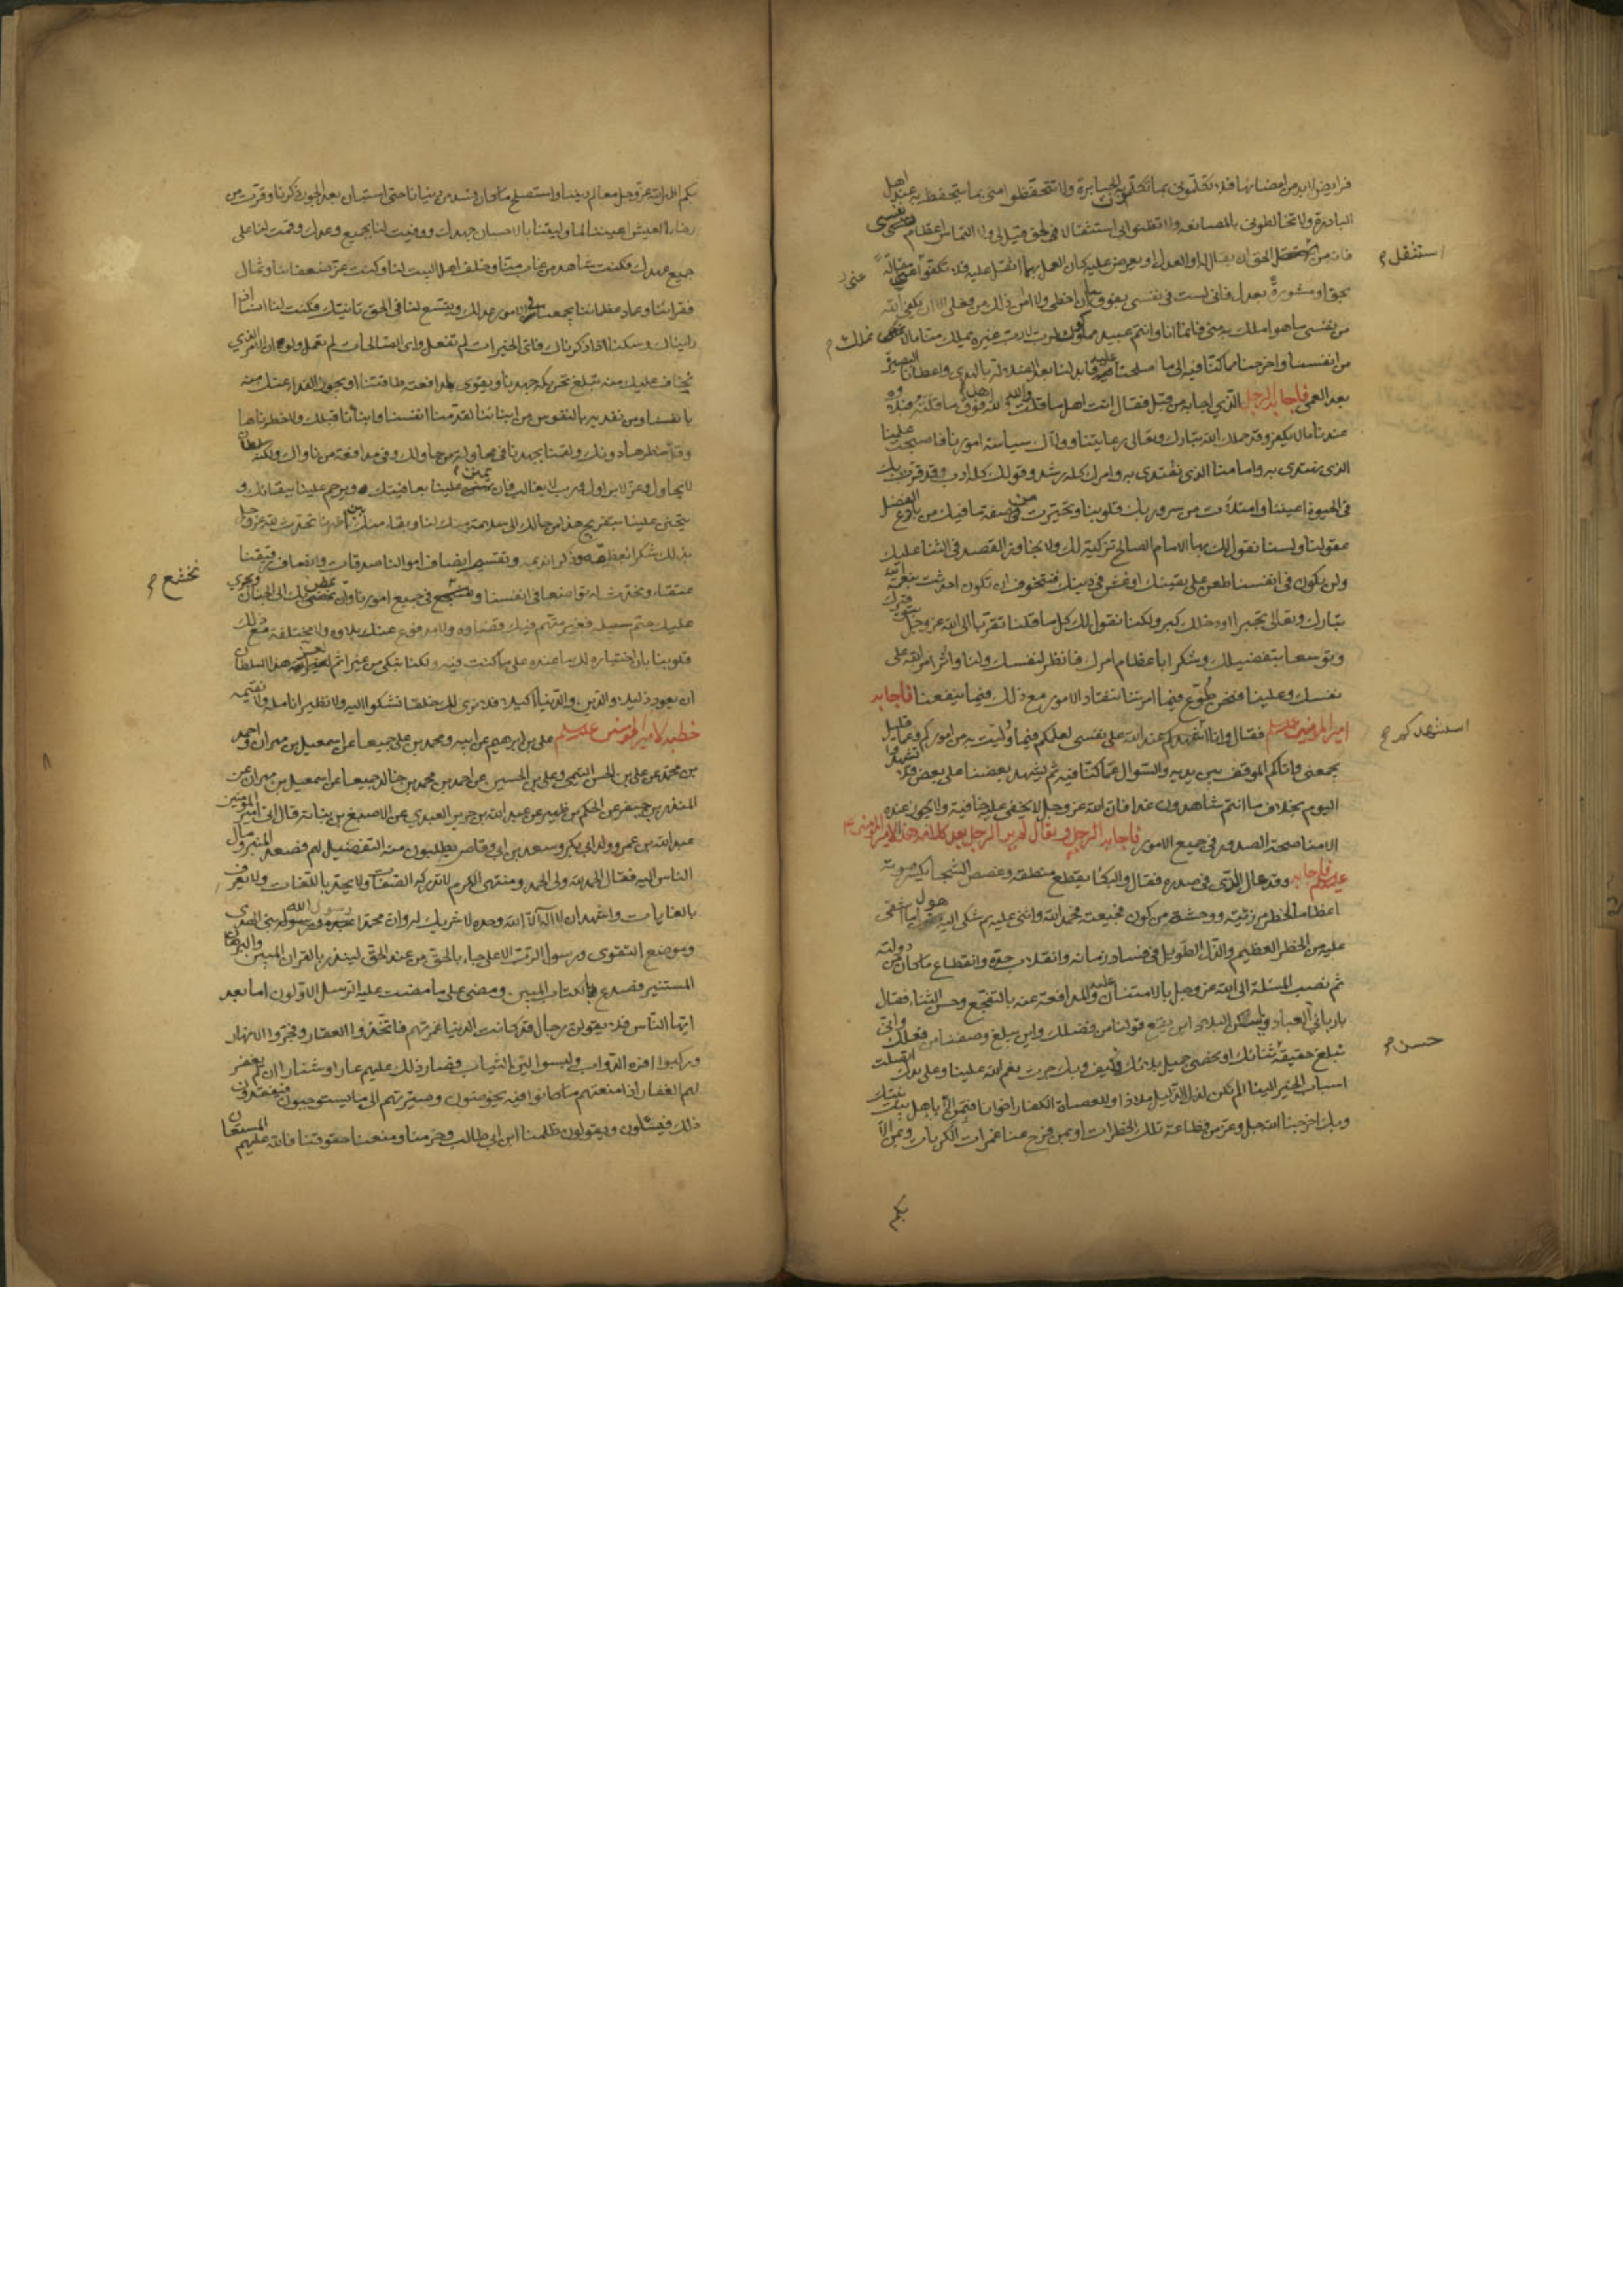 فرايض لابد من امضائها فلا تكلموني بما تكلمون به الجبابرة ولا تتحفظوا مني بما يتحفظ به عند اهل
البادرة ولا تخالطوني بالمصانعة ولا تظنوا بي استثقالا في حق قيل لي ولا التماس اعظام لنفسي
فانه من استثقل الحق ان يقال له او العدل ان يعرض عليه كان العمل بهما اثقل عليه فلا تكفوا عني مقالة
بحق او مشورة بعدل فاني لست في نفسي بفوق ما ان اخطى ولا امن ذلك من فعلي الا ان يكفي الله
من نفسي ما هو املك به مني فانما انا وانتم عبيد مملوكون لرب لا رب غيره يملك منا ما لا نملك
من انفسنا واخرجنا مما كنا فيه الى ما صلحنا عليه فابدلنا بعد الضلالة بالهدى واعطانا البصيرة
بعد العمى فاجابه الرجل الذي اجابه من قبل فقال انت اهل ما قلت والله والله فوق ما قلته فبلاؤه
عندنا ما لا يكفر وقد حملك الله تبارك وتعالى رعايتنا وولاك سياسة امورنا فاصبحت علمنا
الذي نهتدي به وامامنا الذي نقتدي به وامرك كله رشد وقولك كله ادب وقد قرت بك
في الحيوة اعيننا وامتلأت من سرور بك قلوبنا وتحيرت من صفة ما فيك من بارع الفضل
عقولنا ولسنا نقول لك ايها الامام الصالح تزكية لك ولا تجاوز القصد في الثناء عليك
ولن يكون في انفسنا طعن على يقينك او غش في دينك فنتخوف ان تكون احدثت بنعمة الله
تبارك وتعالى تجبرا او دخلك كبر ولكنا نقول لك كل ما قلنا تقربا الى الله عز وجل بتوقيرك
وتوسعا بتفضيلك وشكرا باعظام امرك فانظر لنفسك ولنا واثر امر الله على
نفسك وعلينا فنحن طوع فيما امرتنا ننقاد الامور مع ذلك فيما ينفعنا فاجابه
امير المؤمنين عليه السلام فقال وانا استشهدكم عند الله على نفسي لعلمكم فيما وليت به من اموركم وعما قليل
يجمعني واياكم الموقف بين يديه والسؤال عما كنا فيه ثم يشهد بعضنا على بعض فلا تشهدوا
اليوم بخلاف ما انتم شاهدون غدا فان الله عز وجل لا يخفى عليه خافية ولا يجوز عنده
الا مناصحة الصدور في جميع الامور فاجابه الرجل ويقال لم ير الرجل بعد كلامه هذا لامير المؤمنين
عليه السلام فاجابه وقد عال الذي في صدره فقال والبكاء يقطع منطقه وغصص الشجا يكسر صوته
اعظاما لخطر مرزئته ووحشة من كون فجيعته فحمد الله واثنى عليه ثم شكى اليه هول ما اشفى
عليه من الخطر العظيم والذل الطويل في فساد زمانه وانقلاب جده وانقطاع ما كان من دولته
ثم نصب المسئلة الى الله عز وجل بالامتنان عليه والمدافعة عنه بالتفجع وحسن الثناء فقال
يا رباني العباد ويا سكن البلاد اين يقع قولنا من فضلك واين يبلغ وصفنا من فعلك واني
نبلغ حقيقة ثنائك او نحصي جميل بلائك فكيف وبك جرت نعم الله علينا وعلى يدك اتصلت
اسباب الخير الينا الم تكن لذل الذليل ملاذا وللعصاة الكفار اخوانا فبمن الا باهل بيتك
وبك اخرجنا الله جل وعز من فظاعة تلك الخطرات او بمن فرج عنا غمرات الكربات وبمن الا
بكم
استثقل
عني
نملك
استشهدكم
حسن
بكم اظهر الله عز وجل معالم ديننا واستصلح ما كان فسد من دنيانا حتى استبان بعد الجور ذكرنا وقرت من
رخاء العيش اعيننا لما وليتنا بالاحسان جهدك ووفيت لنا بجميع وعدك وقمت لنا على
جميع عهدك فكنت شاهد من غاب منا وخلف اهل البيت لنا وكنت عز ضعفائنا وثمال
فقرائنا وعماد عظمائنا يجمعنا في الامور عدلك ويتسع لنا في الحق تانيك فكنت لنا انسا اذا
رايناك وسكنا اذا ذكرناك فاي الخيرات لم تفعل واي الصالحات لم تعمل ولو ان الامر الذي
نخاف عليك منه يبلغ تحريكه جهدنا ويقوى لمدافعته طاقتنا او يجوز الفداء عنك منه
بانفسنا ومن نفديه بالنفوس من ابنائنا لقدمنا انفسنا وابنائنا قبلك ولاخطرناها
وقل خطرها دونك ولقمنا بجهدنا في محاولة من حاولك وفي مدافعة من ناواك ولكنه سلطان
لا يحاول وعز لا يزاول ورب لا يغالب فان يمنن علينا بعافيتك ويرحم علينا ببقائك و
يتحنن علينا بتفريج هذا من حالك الى سلامة منك لنا وبقاء منك بين اظهرنا نحدث لله عز وجل
بذلك شكرا نعظمه وذكرا نديمه ونقسم انصاف اموالنا صدقات وانصاف رقيقنا
عتقاء ونحدث له تواضعا في انفسنا ونخشع في جميع امورنا وان يمض بك الى الجنان ويجري
عليك حتم سبيله فغير متهم فيك قضاؤه ولا مدفوع عنك بلاؤه ولا مختلفة مع ذلك
قلوبنا بان اختياره لك ما عنده على ما كنت فيه ولكنا نبكي من غير اثم لعز هذا السلطان
ان يعود ذليلا وللدين والدنيا اكيلا فلا نرى لك خلفا نشكوا اليه ولا نظيرا نامله ولا نقيمه
خطبة لامير المؤمنين عليه السلام علي بن ابرهيم عن ابيه ومحمد بن علي جميعا عن اسمعيل بن مهران واحمد
بن محمد عن علي بن الحسن التيمي وعلي بن الحسين عن احمد بن محمد بن خالد جميعا عن اسمعيل بن مهران عن
المنذر بن جيفر عن الحكم بن ظهير عن عبد الله بن جرير العبدي عن الاصبغ بن نباتة قال اتى امير المؤمنين
عبد الله بن عمر وولد ابي بكر وسعد بن ابي وقاص يطلبون منه التفضيل لهم فصعد المنبر ومال
الناس اليه فقال الحمد لله ولي الحمد ومنتهى الكرم لا تدركه الصفات ولا يحد باللغات ولا يعرف
بالغايات واشهد ان لا اله الا الله وحده لا شريك له وان محمدا رسول الله نبي الهدى
وموضع التقوى ورسول الرب الاعلى جاء بالحق من عند الحق لينذر بالقران المبين والبرهان
المستنير فصدع بالكتاب المبين ومضى على ما مضت عليه الرسل الاولون اما بعد
ايها الناس فلا يقولن رجال قد كانت الدنيا غمرتهم فاتخذوا العقار وفجروا الانهار
وركبوا افره الدواب ولبسوا الين الثياب فصار ذلك عليهم عارا وشنارا ان لم يغفر
لهم الغفار اذا منعتهم ما كانوا فيه يخوضون وصيرتهم الى ما يستوجبون فيفقدون
ذلك فيسئلون ويقولون ظلمنا ابن ابي طالب وحرمنا ومنعنا حقوقنا فالله عليهم المستعان
نخشع